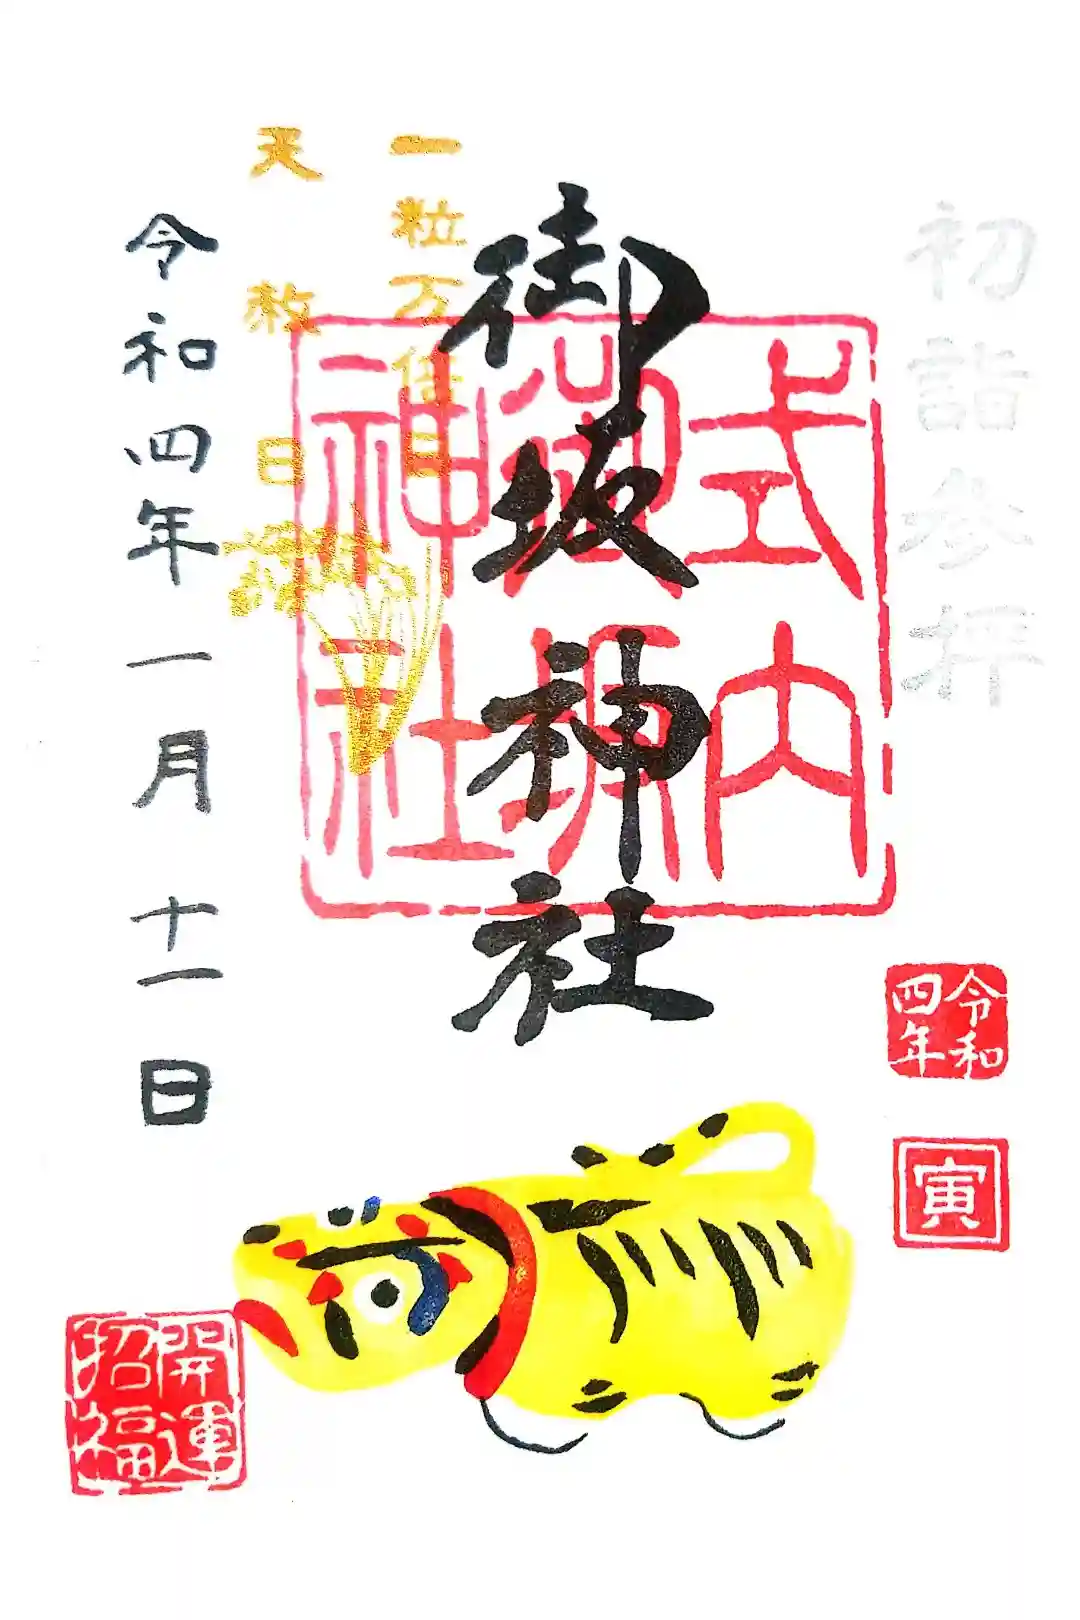 初詣参拝
御坂神社
式内
御坂
神社
一粒万倍日
天赦日
令和四年一月十一日
令和
四年
寅
開運
招福